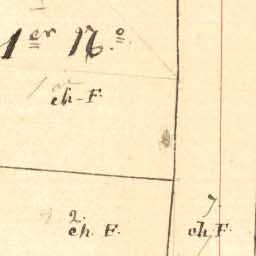 1er No.
ch-F.
2.
ch. F.
7
ch. F.